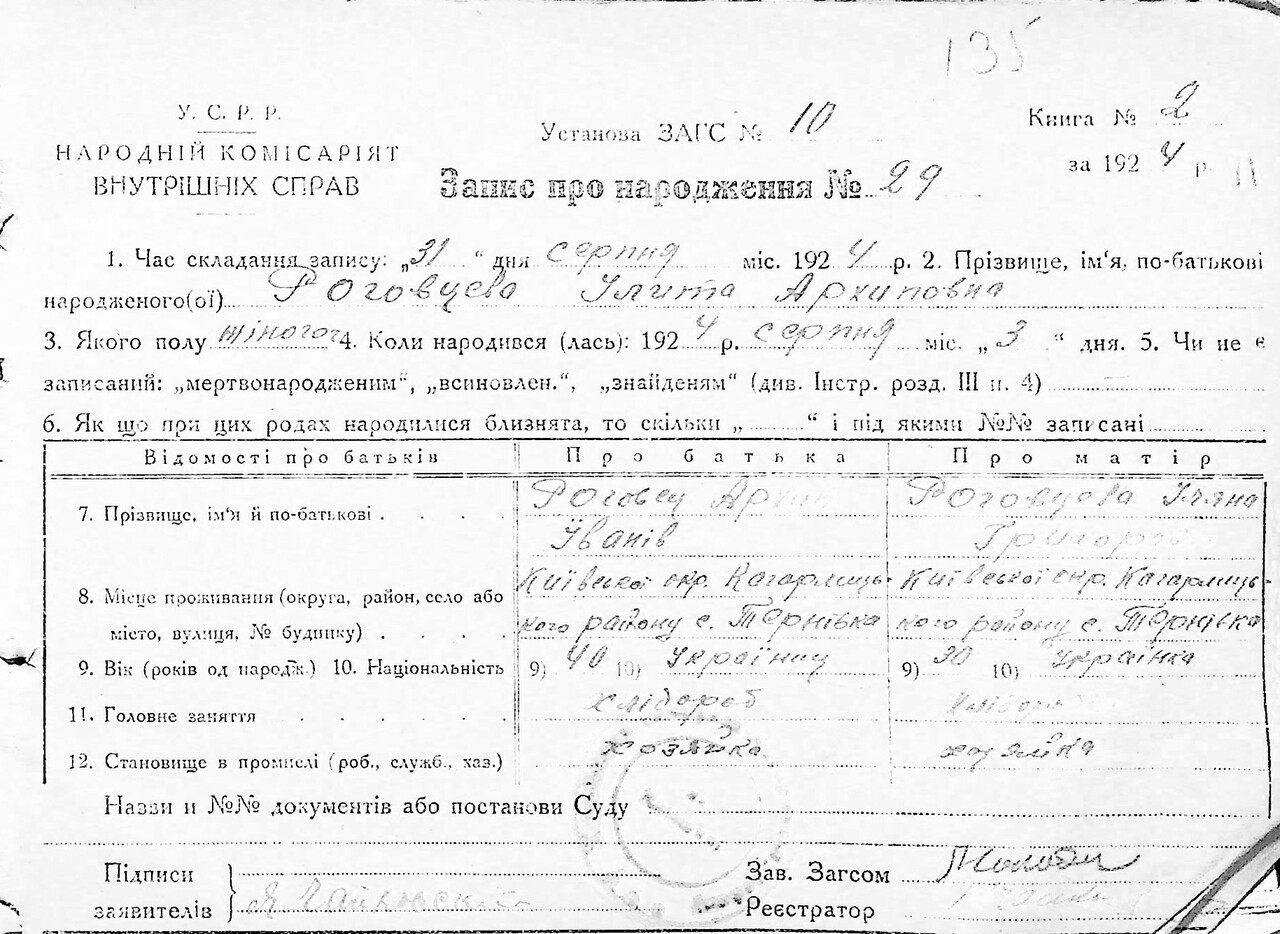 135
У. С. Р. Р.
НАРОДНІЙ КОМІСАРІЯТ
ВНУТРІШНІХ СПРАВ
Установа ЗАГС № 10
Книга № 2
за 1924 р.
Запис про народження № 29
1. Час складання запису: „31“ дня серпня міс. 1924 р. 2. Прізвище, ім'я, по-батькові
народженого(ої) Роговцева Улита Архиповна
3. Якого полу жіного 4. Коли народився (лась): 1924 р. серпня міс. „3“ дня. 5. Чи не є
записаний: „мертвонародженим“, „всиновлен.“, „знайденям“ (див. Інстр. розд. III п. 4)
6. Як що при цих родах народилися близнята, то скільки „ “ і під якими №№ записані
Відомості про батьків Про батька Про матір
7. Прізвище, ім'я й по-батькові
Роговец Іванів
Роговцева Уляна
8. Місце проживання (округа, район, село або
місто, вулиця, № будинку)
Київської окр. Кагарлиць-
кого району с. Тернівка
Київської окр. Кагарлиць-
кого району с. Тернівка
9. Вік (років од народж.) 10. Національність 9) 40 10) Українец 9) 30 10) Українка
11. Головне заняття хлібороб
12. Становище в промислі (роб., служб., хаз.) хозяйка хозяйка
Назви и №№ документів або постанови Суду
Підписи
заявителів
Зав. Загсом
Реєстратор